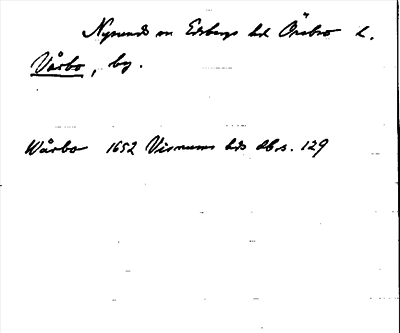 Nysunds sn Edsbergs hd Örebro l.
Vårbo, by.
Wårbo 1652 Visnums hds db s. 129